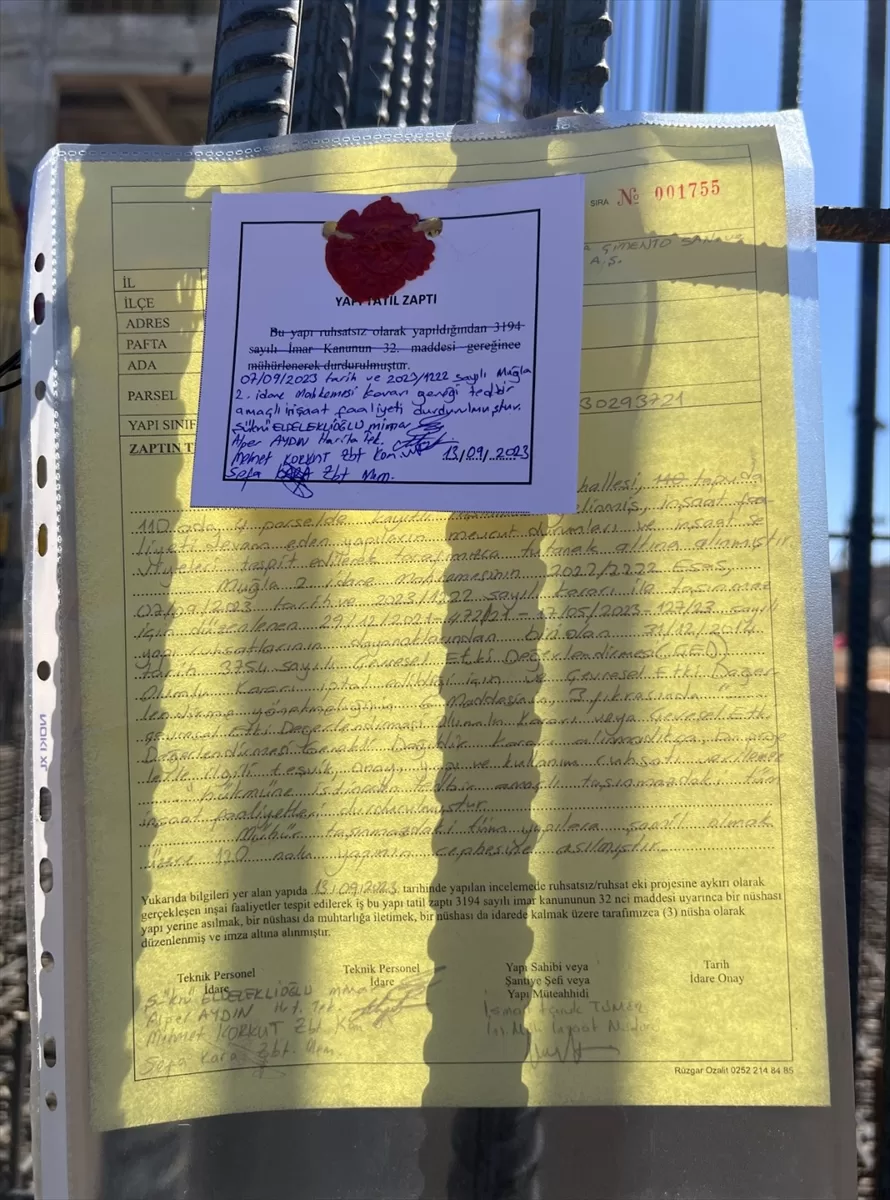 SIRA № 001755
ÇİMENTO SANAYİ
A.Ş.
İL
İLÇE
ADRES
PAFTA
ADA
PARSEL
30293721
YAPI SINIF
ZAPTIN T
YAPI TATİL ZAPTI
Bu yapı ruhsatsız olarak yapıldığından 3194
sayılı İmar Kanunun 32. maddesi gereğince
mühürlenerek durdurulmuştur.
07/09/2023 tarih ve 2023/1222 sayılı Muğla
2. idare Mahkemesi kararı gereği tedbir
amaçlı inşaat faaliyeti durdurulmuştur.
Şükrü ELDELEKLİOĞLU mimar
Alper AYDIN Harita Tek.
Mehmet KORKUT Zbt Kom. 13/09/2023
Sefa KARA Zbt Mem.
hallesi, 110 tapuda
110 ada, parselde inşaat faa
liyeti devam eden yapıların mevcut durumları ve inşaat se
viyeleri tespit edilerek tarafımızca tutanak altına alınmıştır
Muğla 2 idare Mahkemesinin 2022/2222 Esas,
07/09/2023 tarih ve 2023/1222 sayılı kararı ile taşınmaz
için düzenlenen 29/12/2021-472/21 - 17/05/2023-127/23 sayılı
yapı ruhsatlarının dayanaklarından biri olan 31/12/2014
tarih 3754 sayılı Çevresel Etki Değerlendirmesi (ÇED)
Olumlu Kararı iptal edildiği için ve Çevresel Etki Değer-
lendirme yönetmeliğinin 6. Maddesinin, 3 fıkrasında "
Çevresel Etki Değerlendirmesi Olumlu Kararı veya Çevresel Etki
Değerlendirmesi Gerekli Değildir kararı alınmadıkça, bu proje
lerle ilgili teşvik, onay, yapı ve kullanım ruhsatı verilemez
" hükmüne istinaden tedbir amaçlı taşınmazdaki tüm
inşaat faaliyetleri durdurulmuştur.
Mühür taşınmazdaki tüm yapılara şamil olmak
üzere 120 nolu yapının cephesine asılmıştır.
Yukarıda bilgileri yer alan yapıda 13/09/2023 tarihinde yapılan incelemede ruhsatsız/ruhsat eki projesine aykırı olarak
gerçekleşen inşai faaliyetler tespit edilerek iş bu yapı tatil zaptı 3194 sayılı imar kanununun 32 nci maddesi uyarınca bir nüshası
yapı yerine asılmak, bir nüshası da muhtarlığa iletimek, bir nüshası da idarede kalmak üzere tarafımızca (3) nüsha olarak
düzenlenmiş ve imza altına alınmıştır.
Teknik Personel Teknik Personel Yapı Sahibi veya Tarih
İdare İdare Şantiye Şefi veya İdare Onay
Yapı Müteahhidi
Şükrü ELDELEKLİOĞLU mimar
Alper AYDIN Hrt. Tek.
Mehmet KORKUT Zbt Kom
Sefa Kara Zbt. Mem
Rüzgar Ozalit 0252 214 84 85